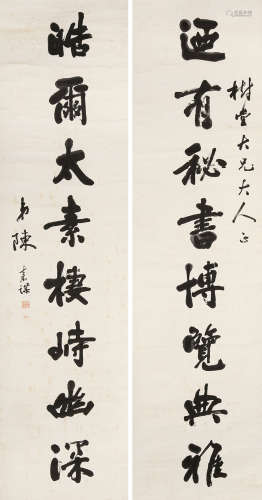 樹堂大兄大人正
迺有秘書博覽典雅
皓爾太素棲峙幽深
弟陳